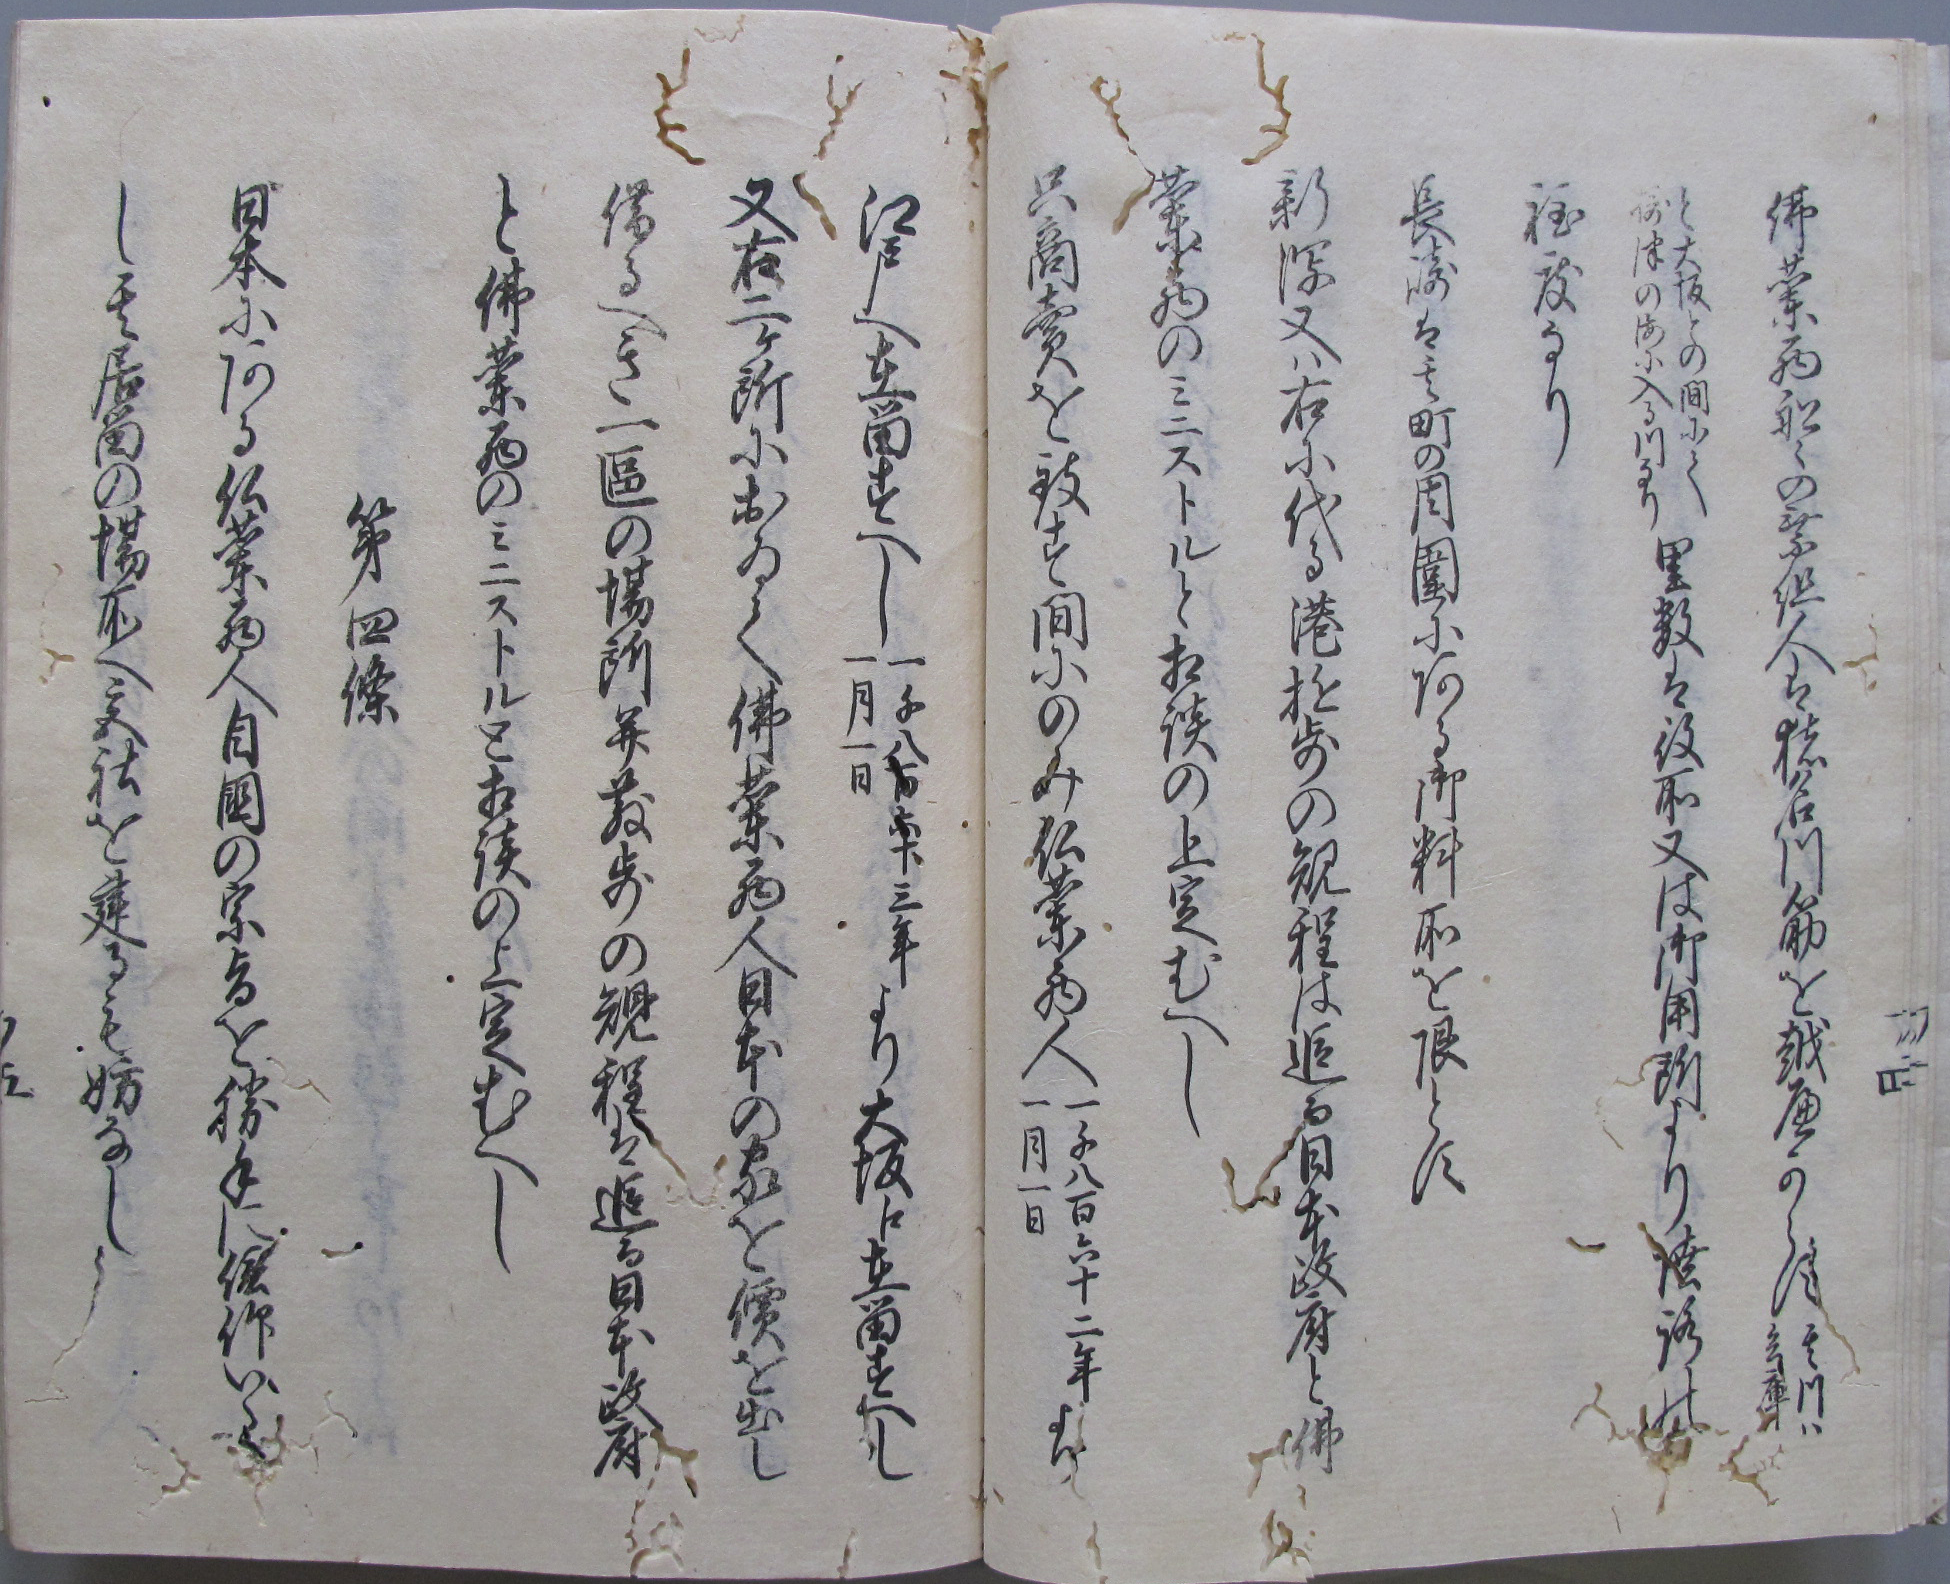 佛蘭西船々の乗組人ハ猪名川筋を越へからす 其川ハ兵庫
と大坂との間ニて
摂津の海ニ入る川なり 里数は役所又は御用所より陸路の
程度なり
長崎は其町の周圍にある御料所を限とす
新潟又ハ右に代る港遊歩の規程は追而日本政府と佛
蘭西のミニストルと相談の上定むへし
只商賣を致す間にのみ仏蘭西人 一千八百六十二年
一月一日 より
江戸へ在留すへし 一千八百六十三年
一月一日 より大坂江在留すへし
又右二ヶ所におゐて佛蘭西人日本の家を價を出し
借るへき一區の場所并散歩の規程は追而日本政府
と佛蘭西のミニストルと相談の上定むへし
第四條
日本にある仏蘭西人自國の宗旨を勝手に信仰いたし
其居留の場所へ宮社を建るも妨なし